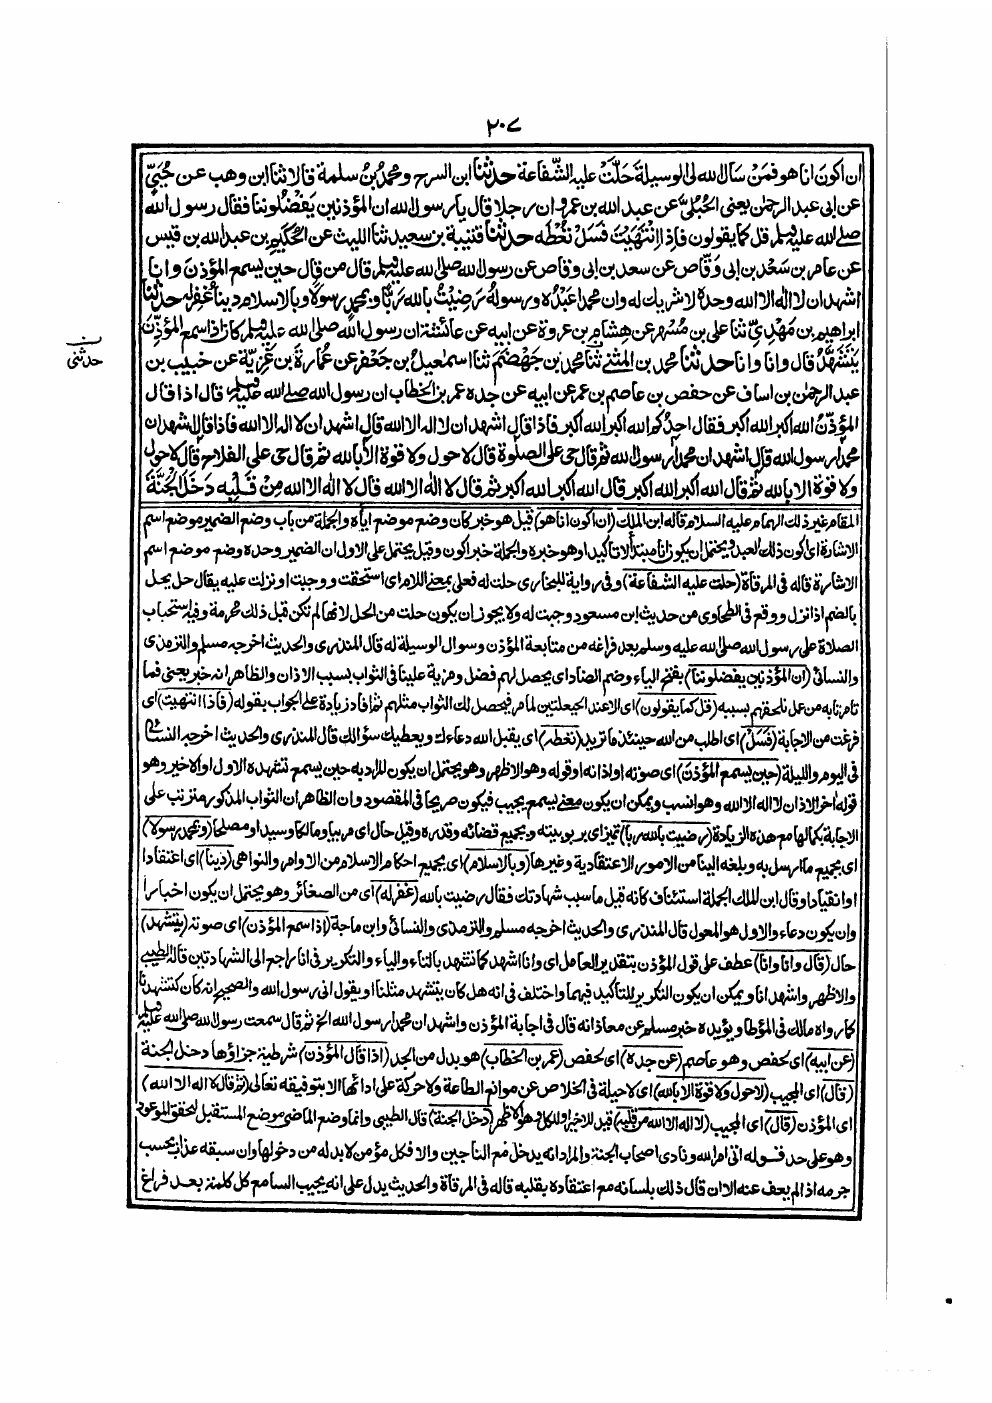 ٢٠٧
ان اكون انا هو فمن سأل الله لي الوسيلة حلت عليه الشفاعة حدثنا ابن السرح ومحمد بن سلمة قالا ثنا ابن وهب عن حُيَيّ
عن ابي عبد الرحمن يعني الحُبُلِيَّ عن عبد الله بن عمرو ان رجلا قال يا رسول الله ان المؤذنين يَفْضُلُوننا فقال رسول الله
صلى الله عليه وسلم قل كما يقولون فإذا انْتَهَيْتَ فَسَلْ تُعْطَه حدثنا قتيبة بن سعيد ثنا الليث عن الحُكَيم بن عبد الله بن قيس
عن عامر بن سَعْد بن ابي وَقّاص عن سعد بن ابي وقاص عن رسول الله صلى الله عليه وسلم قال من قال حين يسمع المؤذن وانا
اشهد ان لا اله الا الله وحدة لا شريك له وان محمدا عبدُه ورسولُهُ رَضِيْتُ بالله رَبًّا وبمحمدٍ رسولًا وبالاسلام دينًا غُفِرَ له حدثنا
ابراهيم بن مَهْدِيّ ثنا علي بن مُسْهِر عن هِشام بن عروة عن ابيه عن عائشة ان رسول الله صلى الله عليه وسلم كان اذا سمع المؤذِّنَ
يَتَشَهَّدُ قال وانا وانا حدثنا محمد بن المثنى ثنا محمد بن جَهْضَم ثنا اسمعيلُ بن جَعْفر عن عُمارةَ بن غَزِيّة عن خبيب بن
حدثني
عبد الرحمن بن اساف عن حفص بن عاصم بن عمر عن ابيه عن جده عمر بن الخطاب ان رسول الله صلى الله عليه وسلم قال اذا قال
المؤذّنُ الله اكبر الله اكبر فقال احدُكم الله اكبر الله اكبر فاذا قال اشهد ان لا اله الا الله قال اشهد ان لا اله الا الله فاذا قال اشهد ان
محمدا رسول الله قال اشهد ان محمدا رسول الله ثم قال حي على الصلوة قال لا حول ولا قوة الا بالله ثم قال حي على الفلاح قال لا حول
ولا قوة الا بالله ثم قال الله اكبر الله اكبر قال الله اكبر الله اكبر ثم قال لا اله الا الله قال لا اله الا الله مِنْ قَلْبِه دَخَلَ الجنَّةَ
المقام غير ذلك الهمام عليه السلام قاله ابن الملك (ان اكون انا هو) قيل هو خبر كان وضع موضع اياه والجملة من باب وضع الضمير موضع اسم
الاشارة اى اكون ذلك العبد ويحتمل ان يكون انا مبتدأ لا تأكيدا وهو خبره والجملة خبر اكون وقيل يحتمل على الاول ان الضمير وحده وضع موضع اسم
الاشارة قاله في المرقاة (حلت عليه الشفاعة) وفي رواية للبخاري حلت له فعلى بمعنى اللام اى استحقت ووجبت او نزلت عليه يقال حل يحل
بالضم اذا نزل ووقع في الطحاوي من حديث ابن مسعود وجبت له ولا يجوز ان يكون حلت من الحل لانها لم تكن قبل ذلك محرمة وفيه استحباب
الصلاة على رسول الله صلى الله عليه وسلم بعد فراغه من متابعة المؤذن وسوال الوسيلة له قال المنذري والحديث اخرجه مسلم والترمذي
والنسائى (ان المؤذنين يفضلوننا) بفتح الياء وضم الضاد اى يحصل لهم فضل ومزية علينا في الثواب بسبب الاذان والظاهر انه خبر يعني فما
تامرنا به من عمل نلحقهم بسببه (قل كما يقولون) اى الا عند الحيعلتين لما مر فيحصل لك الثواب مثلهم ثم افاد زيادة على الجواب بقوله (فاذا انتهيت) اى
فرغت من الاجابة (فسل) اى اطلب من الله حينئذ ما تريد (تعطه) اى يقبل الله دعاءك ويعطيك سؤالك قال المنذري والحديث اخرجه النسائي
في اليوم والليلة (حين يسمع المؤذن) اى صوته او اذانه او قوله وهو الاظهر وهو يحتمل ان يكون المراد به حين يسمع تشهده الاول او الاخير وهو
قوله اخر الاذان لا اله الا الله وهو انسب ويمكن ان يكون معنى يسمع يجيب فيكون صريحا في المقصود وان الظاهر ان الثواب المذكور مترتب على
الاجابة بكمالها مع هذه الزيادة (رضيت بالله ربا) تمييز اى بربوبيته وبجميع قضائه وقدره وقيل حال اى مربيا ومالكا وسيدا ومصلحا (وبمحمد رسولا)
اى بجميع ما ارسل به وبلغه الينا من الامور الاعتقادية وغيرها (وبالاسلام) اى بجميع احكام الاسلام من الاوامر والنواهي (دينا) اى اعتقادا
او انقيادا وقال ابن الملك الجملة استئناف كانه قيل ما سبب شهادتك فقال رضيت بالله (غفر له) اى من الصغائر وهو يحتمل ان يكون اخبارا
وان يكون دعاء والاول هو المعول قال المنذري والحديث اخرجه مسلم والترمذي والنسائى وابن ماجة (اذا سمع المؤذن) اى صوته (يتشهد)
حال (قال وانا وانا) عطف على قول المؤذن بتقدير العامل اى وانا اشهد كما تشهد بالتاء والياء والتكرير في انا راجع الى الشهادتين قاله الطيبي
والاظهر واشهد انا ويمكن ان يكون التكرير للتأكيد فيهما واختلف في انه هل كان يتشهد مثلنا او يقول اني رسول الله والصحيح انه كان كتشهدنا
كما رواه مالك في المؤطا ويؤيده خبر مسلم عن معاذ انه قال في اجابة المؤذن واشهد ان محمدا رسول الله الخ ثم قال سمعت رسول الله صلى الله عليه وسلم
(عن ابيه) اى لحفص وهو عاصم (عن جده) اى لحفص (عمر بن الخطاب) هو بدل من الجد (اذا قال المؤذن) شرطية جزاؤها دخل الجنة
(قال) اى المجيب (لا حول ولا قوة الا بالله) اى لا حيلة في الخلاص عن موانع الطاعة ولا حركة على ادائها الا بتوفيقه تعالى (ثم قال لا اله الا الله)
اى المؤذن (قال) اى المجيب (لا اله الا الله من قلبه) قيل للاخير او للكل وهو الاظهر (دخل الجنة) قال الطيبي وانما وضع الماضي موضع المستقبل لتحقق الموعود
وهو على حد قوله اتى امر الله ونادى اصحاب الجنة والمراد انه يدخل مع الناجين والا فكل مؤمن لا بد له من دخولها وان سبقه عذاب بحسب
جرمه اذا لم يعف عنه الا ان قال ذلك بلسانه مع اعتقاده بقلبه قاله في المرقاة والحديث يدل على انه يجيب السامع كل كلمة بعد فراغ